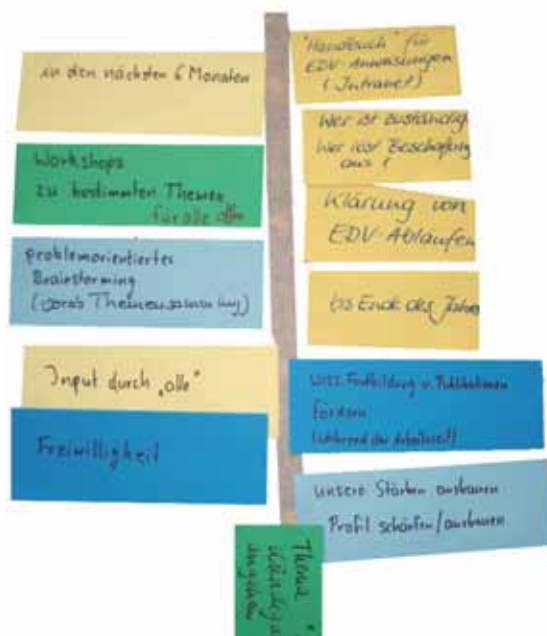 in den nächsten 6 Monaten
Workshops
zu bestimmten Themen
für alle offen
problemorientiertes
Brainstorming
(vorab Themensammlung)
Input durch „alle"
Freiwilligkeit
"Handbuch" für
EDV-Anweisungen
(Intranet)
Wer ist zuständig
Wer löst Beschaffung
aus?
Klärung von
EDV-Abläufen
bis Ende des Jahres
wiss. Fortbildung u. Publikationen
fördern
(während der Arbeitszeit)
unsere Stärken ausbauen
Profil schärfen/ausbauen
Thema
angehen